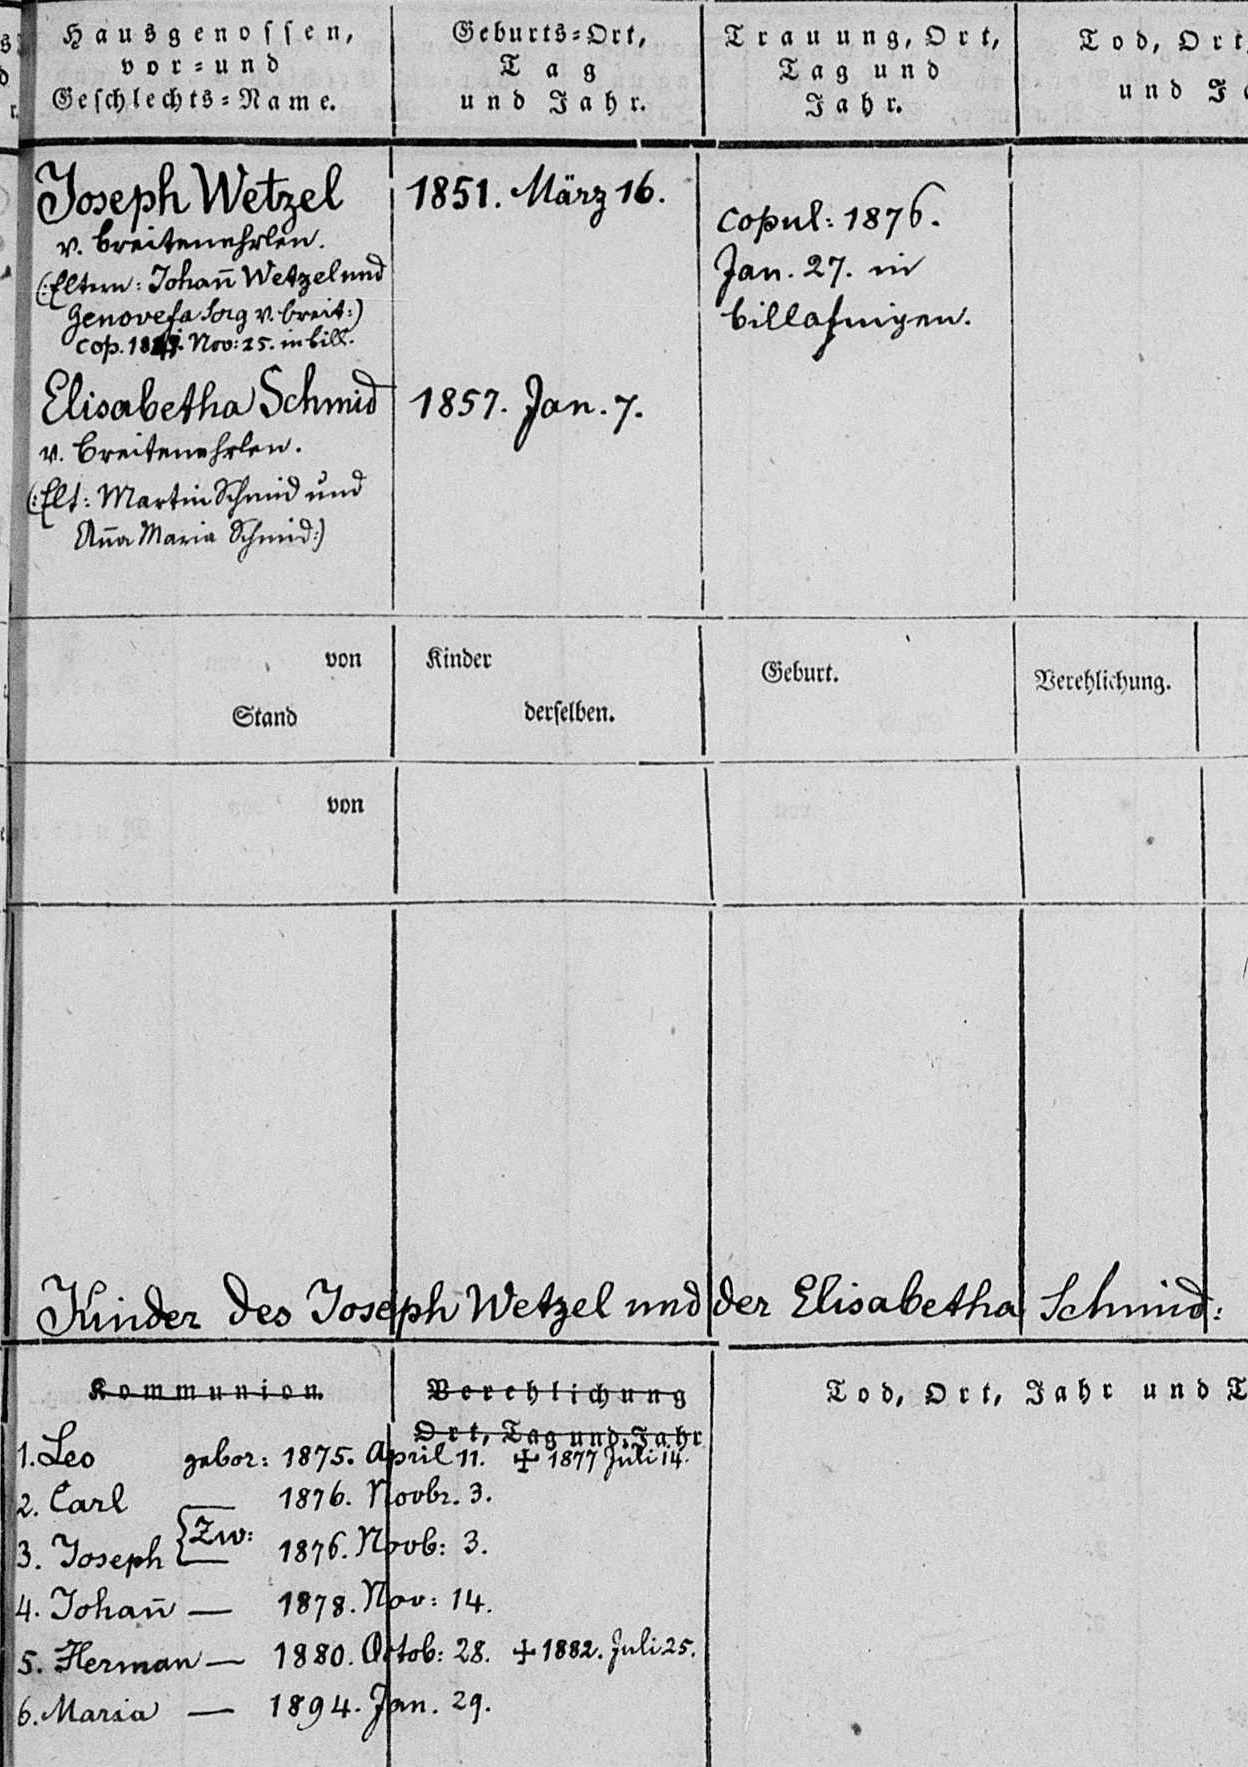 Hausgenossen,
vor=und
Geschlechts=Name.
Geburts=Ort,
Tag
und Jahr.
Trauung, Ort,
Tag und
Jahr.
Tod, Ort
und J
Joseph Wetzel
v. Breitenehrlen.
(:Eltern: Johañ Wetzel und
Genovefa Sorg v. Breit:)
cop. Nov: 25. in Bill.
1851. März 16.
copul: 1876.
Jan. 27. in
Billafingen.
Elisabetha Schmid
v. Breitenehrlen.
(:Elt: Martin Schmid und
Aña Maria Schmid:)
1857. Jan. 7.
von
Stand
Kinder
derselben.
Geburt.
Verehlichung.
von
Kinder des Joseph Wetzel und der Elisabetha Schmid:
Kommunion.
Verehlichung
Ort, Tag und Jahr
Tod, Ort, Jahr und T
1. Leo gebor: 1875. April 11. ✝ 1877 Juli 14.
2. Carl — 1876. Novbr. 3.
{Zw:
3. Joseph — 1876. Novb: 3.
4. Johañ — 1878. Nov: 14.
5. Herman — 1880. Octob: 28. ✝ 1882. Juli 25.
6. Maria — 1894. Jan. 29.